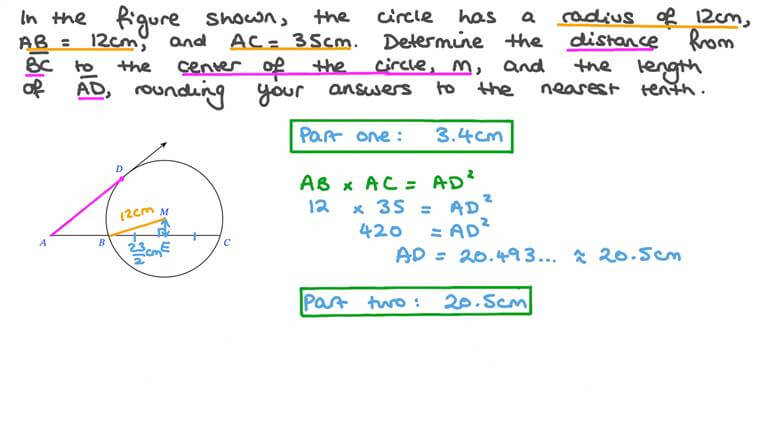 In the figure shown, the circle has a radius of 12cm,
AB = 12cm, and AC = 35cm. Determine the distance from
BC to the center of the circle, M, and the length
of AD, rounding your answers to the nearest tenth.
Part one: 3.4cm
AB × AC = AD²
12 × 35 = AD²
420 = AD²
AD = 20.493... ≈ 20.5cm
Part two: 20.5cm
D
12cm
M
A
B
E
C
23/2 cm